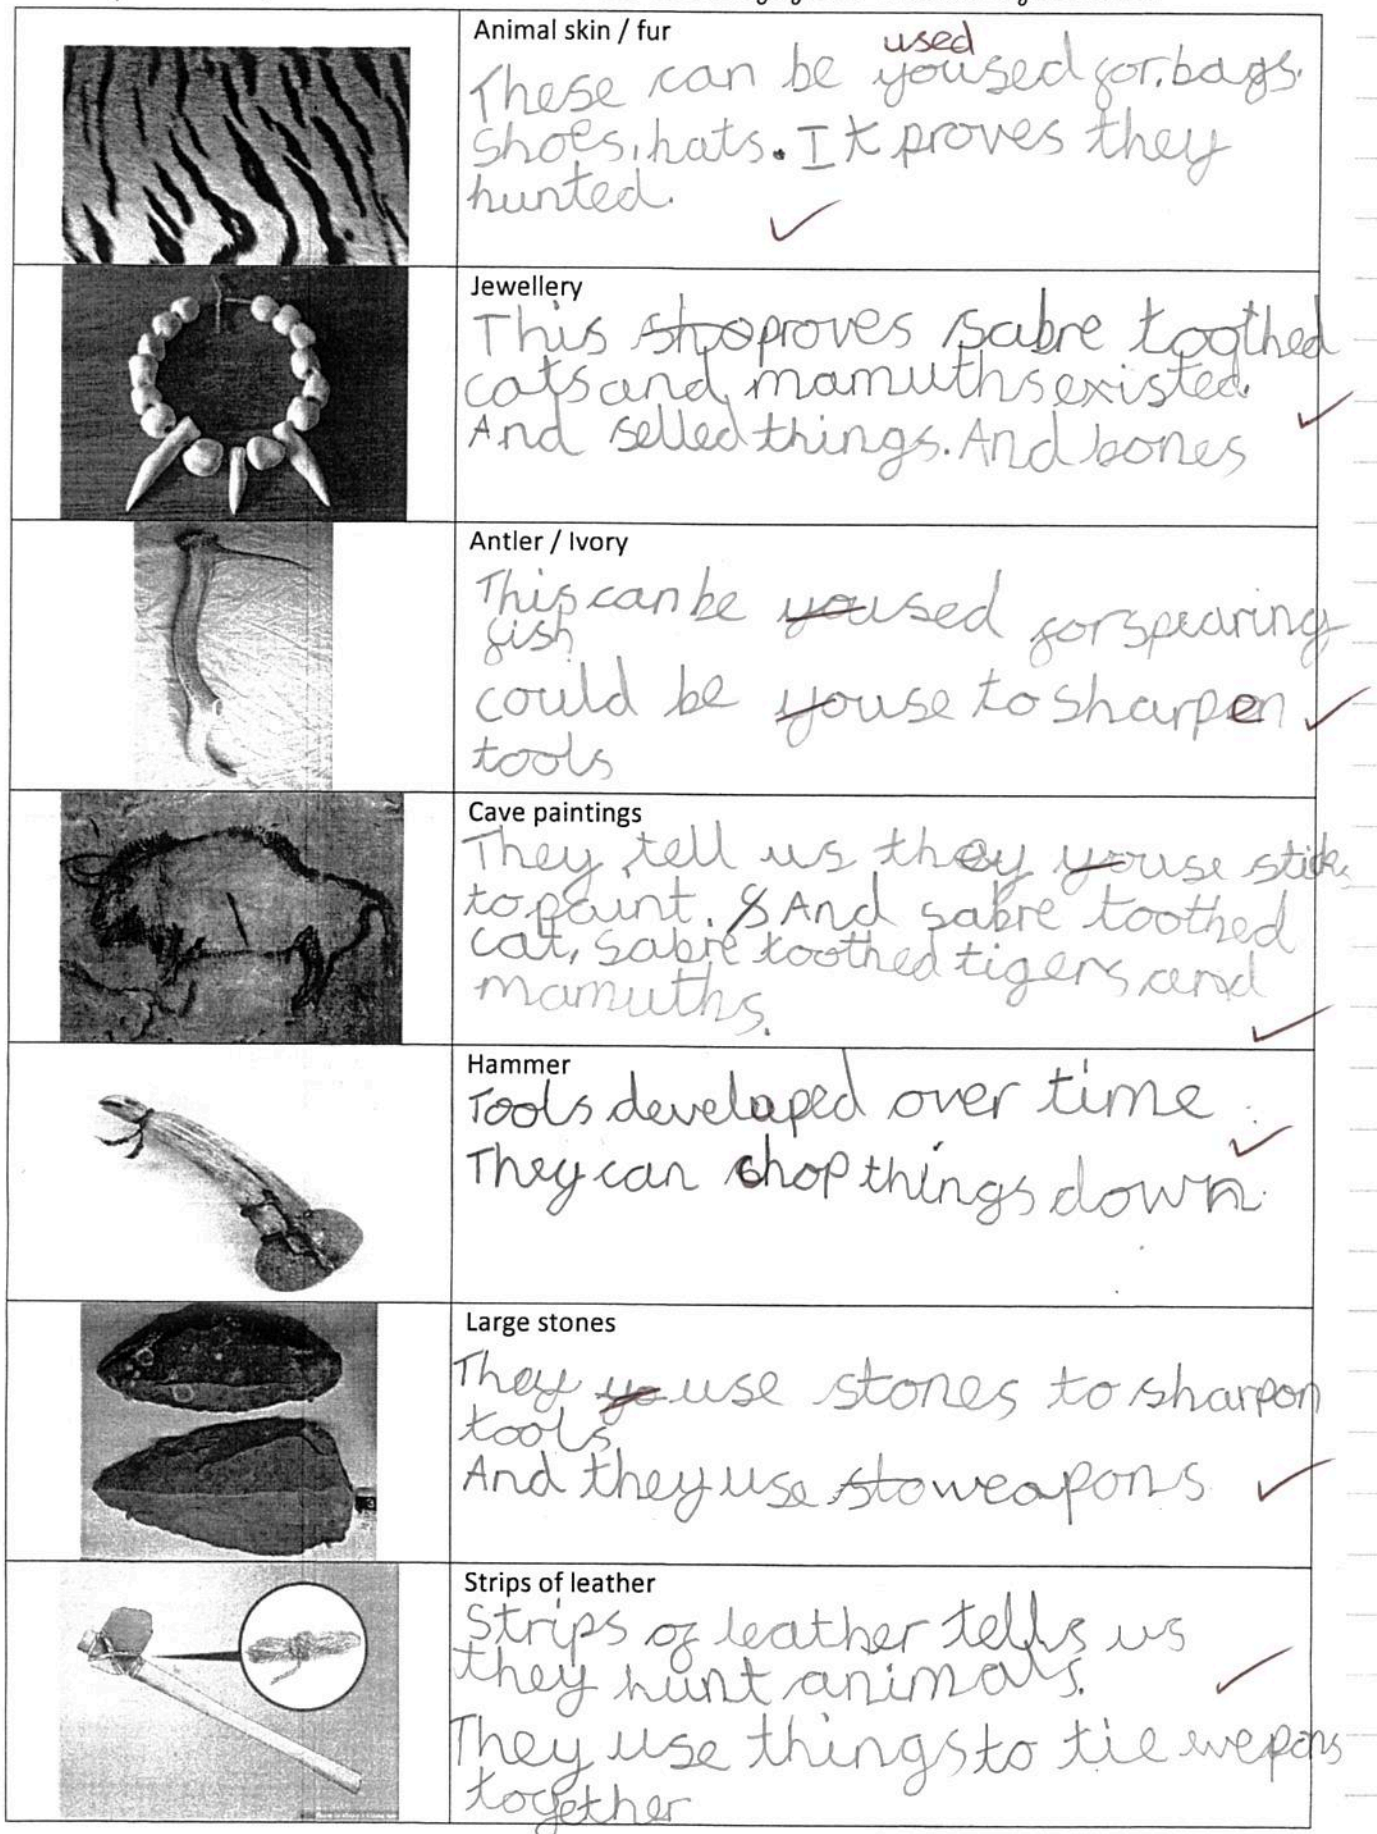 Animal skin / fur
used
These can be yoused for, bags,
shoes, hats. It proves they
hunted.
Jewellery
This sho proves sabre toothed
cats and mamuths existed.
And selled things. And bones
Antler / Ivory
This can be yoused for spearing
fish
could be youse to sharpen
tools
Cave paintings
They tell us they youse stick
to paint. And sabre toothed
cat, sabre toothed tigers and
mamuths.
Hammer
Tools developed over time
They can chop things down.
Large stones
They youse stones to sharpon
tools
And they use sto weapons
Strips of leather
Strips of leather tells us
they hunt animals.
They use things to tie wepons
together